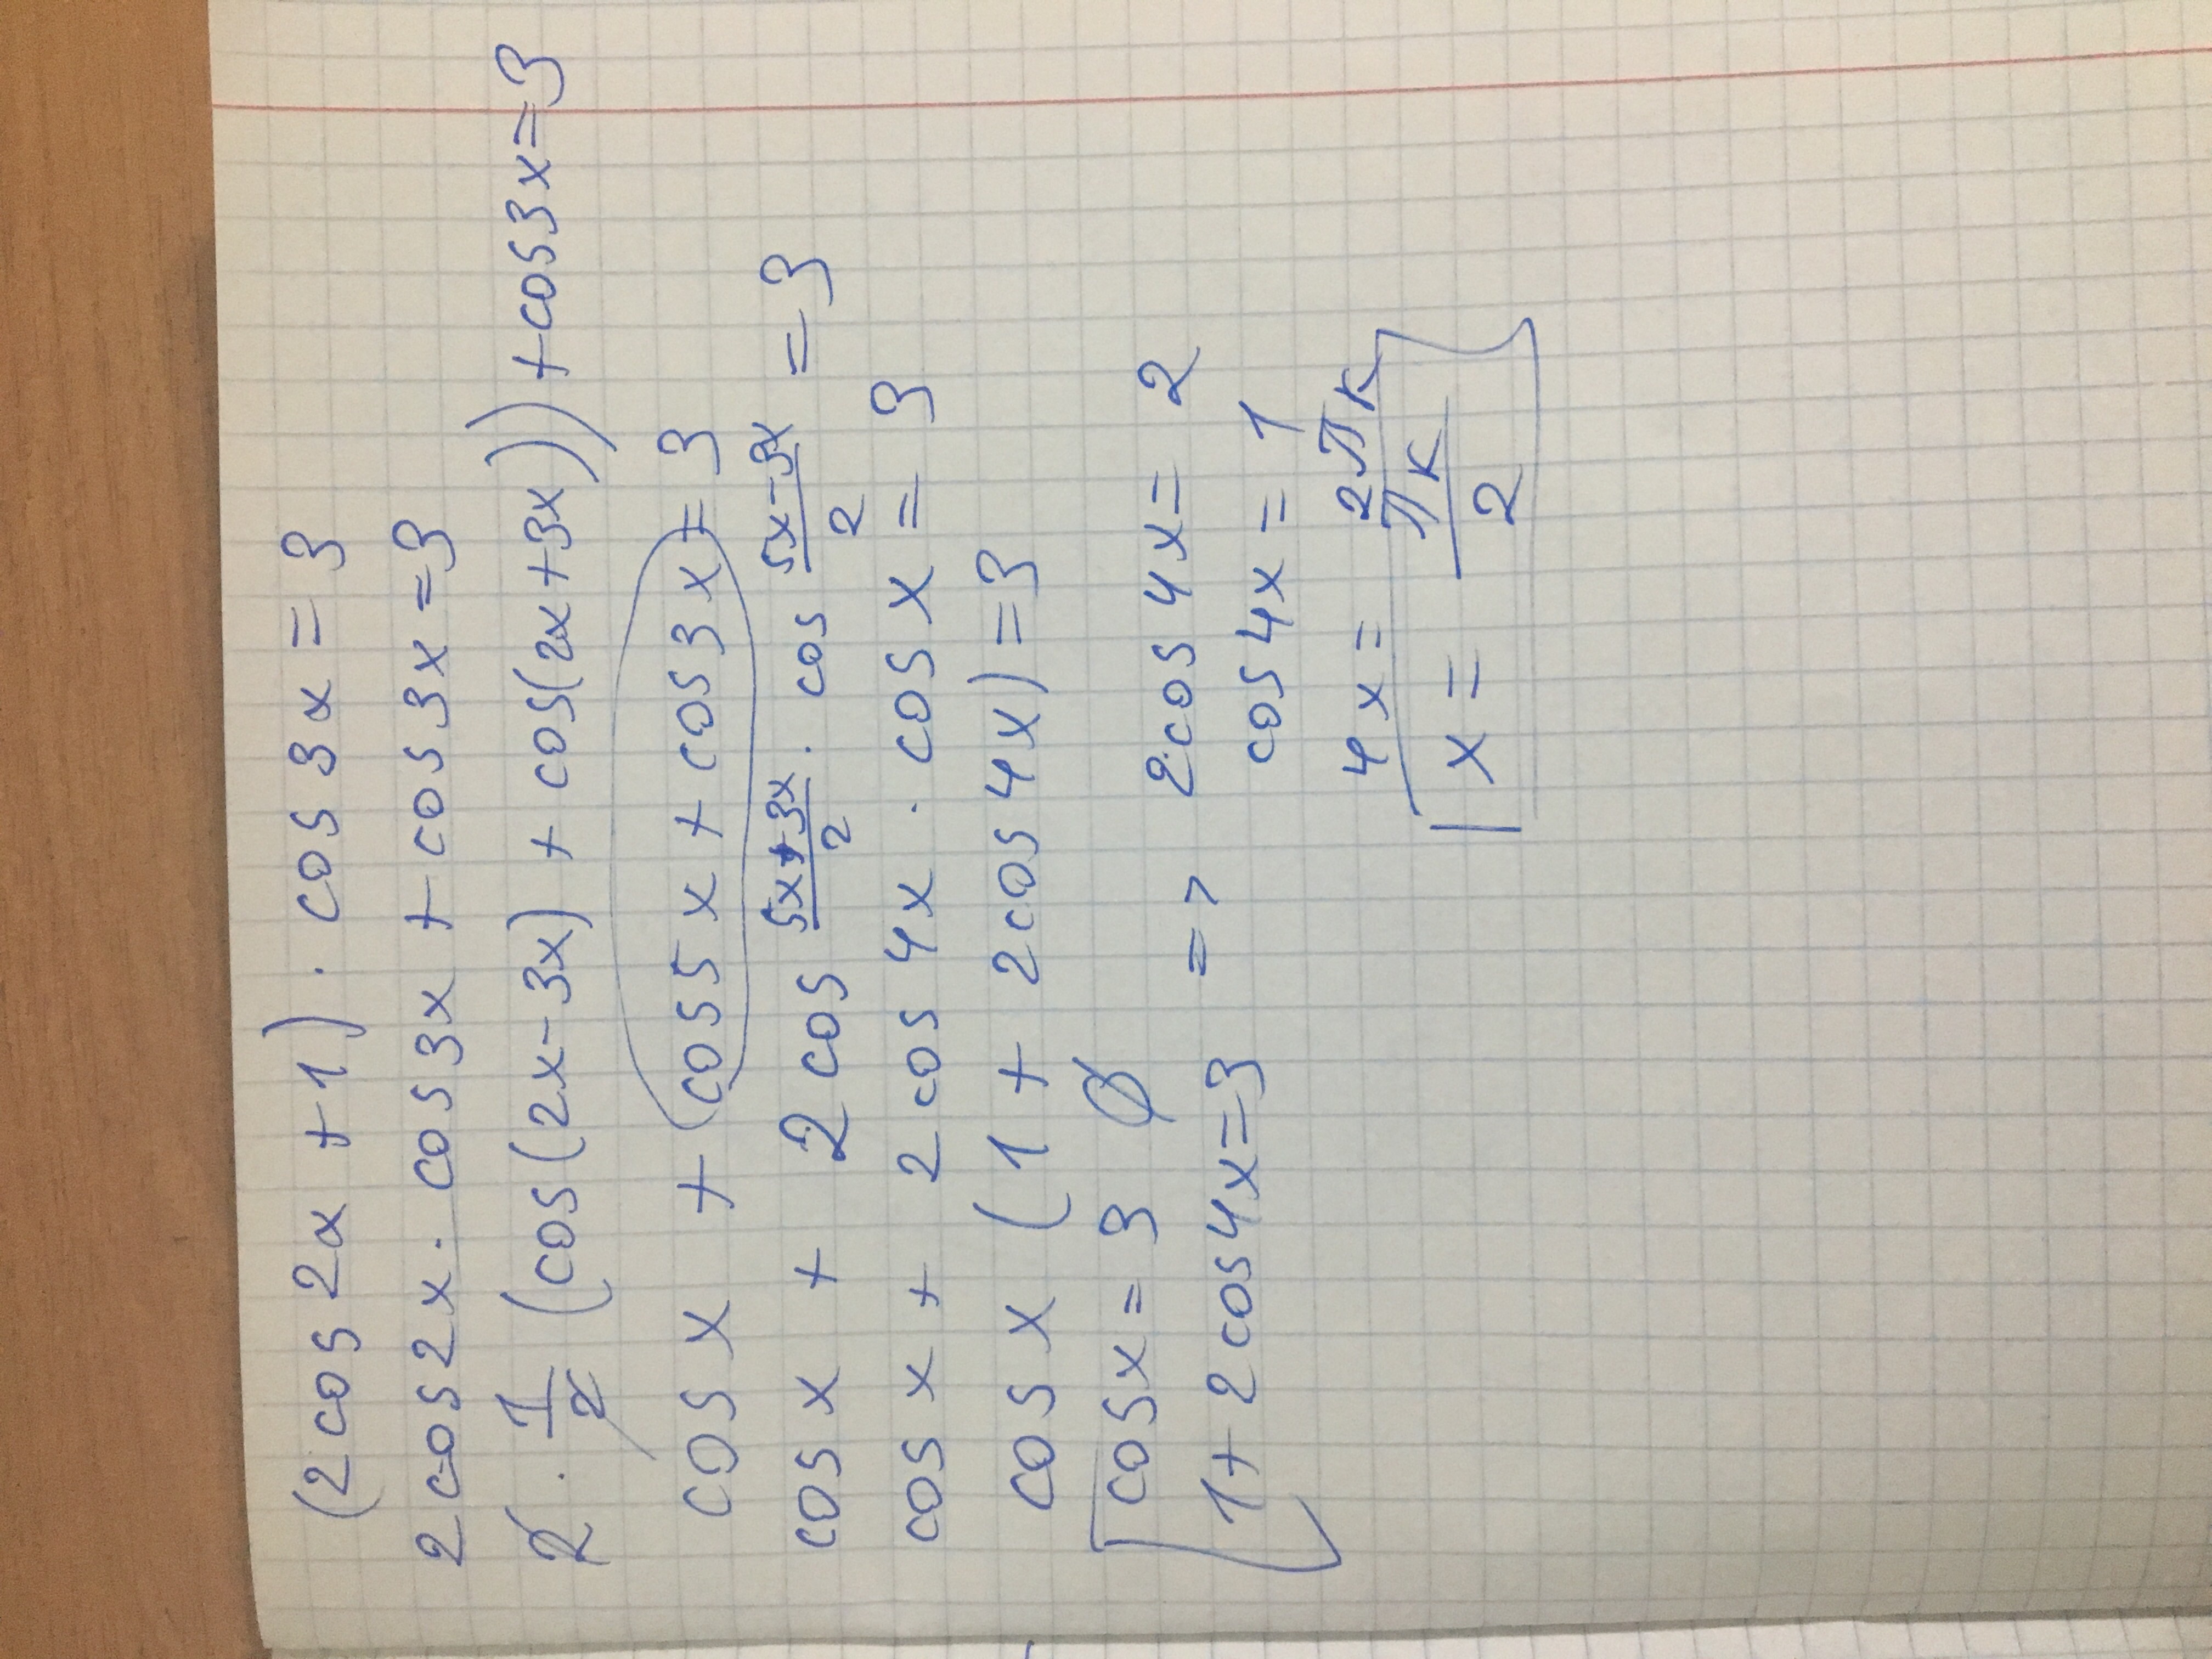 (2cos 2x + 1) · cos 3x = 3
2cos2x · cos3x + cos3x = 3
2 · 1/2 (cos(2x-3x) + cos(2x+3x)) + cos3x = 3
cos x + cos5x + cos3x = 3
cos x + 2cos (5x+3x)/2 · cos (5x-3x)/2 = 3
cos x + 2cos 4x · cos x = 3
cos x (1 + 2cos 4x) = 3
cosx = 3 ∅
1 + 2cos4x = 3 => 2cos 4x = 2
cos 4x = 1
4x = 2πк
x = πк/2